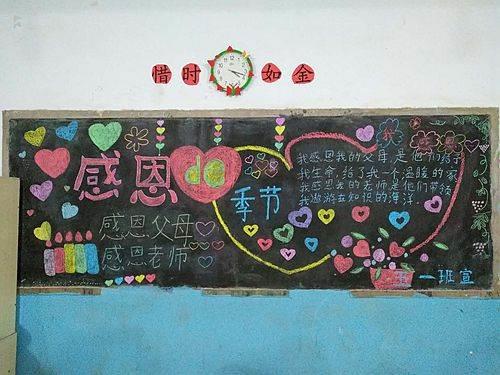 惜时如金
感恩de
季节
感恩父母
感恩老师
我感恩
我感恩我的父母,是他们给予
我生命,给了我一个温暖的家
我感恩我的老师是他们带领
我遨游在知识的海洋
一班宣